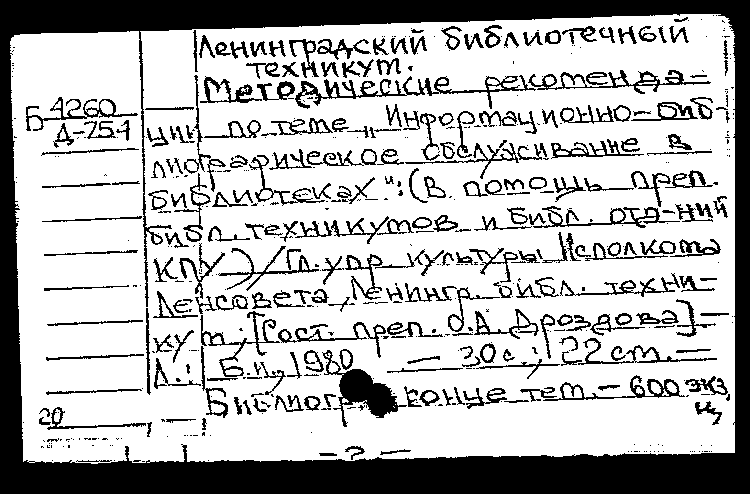 Ленинградский библиотечный
техникум.
Методические рекоменда-
Б 4260
Д-751
ции по теме „Информационно-биб-
лиографическое обслуживание в
библиотеках":(В помощь преп.
библ. техникумов и библ. отд-ний
КПУ)/Гл. упр культуры Исполкома
Ленсовета, Ленингр. библ. техни-
кум; [Сост. преп. О.А. Дроздова]-
Л.: Б.и., 1980 - 30с.; 22 см.-
Библиогр. конце тем.- 600 экз,
20